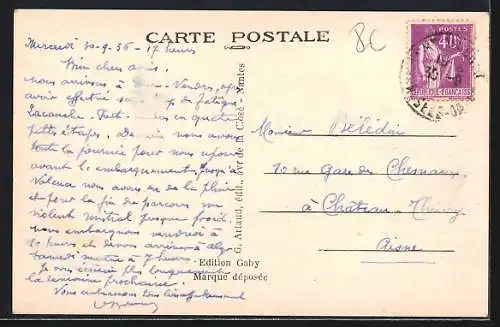 CARTE POSTALE
8C
POSTES
40
RÉPUBLIQUE FRANÇAISE
Mercredi 30-9-36 - 17 heures
Mon cher amis,
nous arrivons à Vendres,
avoir effectué sans de fatigue
Lacanale - en quatre
petites étapes. nous avons
toute la journée pour nous reposer
avant l'embarquement. Jusqu'à
Valence nous avons eu de la pluie
et pour la fin de parcours un
violent mistral presque froid.
nous embarquons vendredi à
heures et devons arriver à Alger
samedi matin à 7 heures.
Je vous écrirai plus longuement
la semaine prochaine.
Vous embrassons tous
G. Artaud, édit., rue de la Close - Nantes
Edition Gaby
Marque déposée
Monsieur Bélédin
10 rue Gare des Chesneaux
à Château-Thierry
Aisne